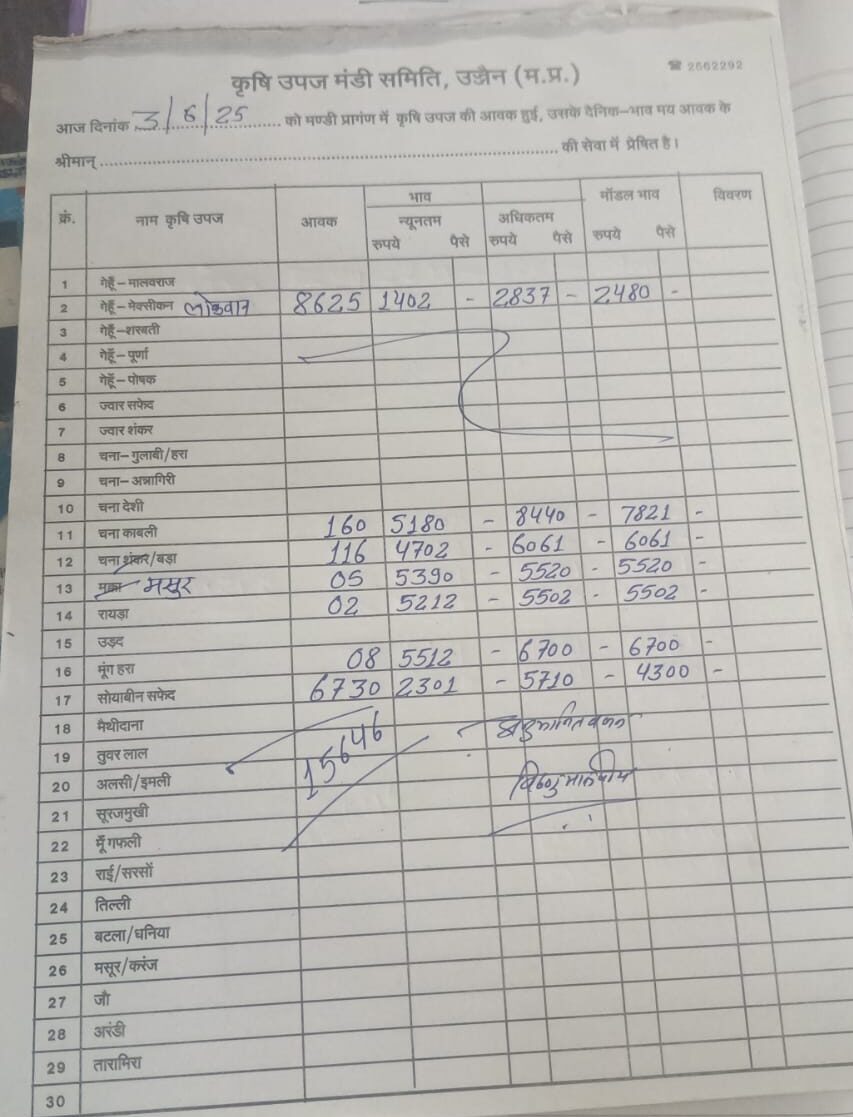 कृषि उपज मंडी समिति, उज्जैन (म.प्र.) ☎ 2562292
आज दिनांक 3/6/25 को मण्डी प्रागंण में कृषि उपज की आवक हुई, उसके दैनिक-भाव मय आवक के
श्रीमान् की सेवा में प्रेषित है।
भाव मॉडल भाव विवरण
क्रं. नाम कृषि उपज आवक न्यूनतम अधिकतम
रुपये पैसे रुपये पैसे रुपये पैसे
1 गेहूँ-मालवराज
2 गेहूँ-मेक्सीकन लोकवान 8625 1402 - 2837 - 2480 -
3 गेहूँ-शरबती
4 गेहूँ-पूर्णा
5 गेहूँ-पोषक
6 ज्वार सफेद
7 ज्वार शंकर
8 चना-गुलाबी/हरा
9 चना-अन्नागिरी
10 चना देशी
11 चना काबली 160 5180 - 8440 - 7821 -
12 चना शंकर/बड़ा 116 4702 - 6061 - 6061 -
13 मक्का मसुर 05 5390 - 5520 - 5520 -
14 रायड़ा 02 5212 - 5502 - 5502 -
15 उड़द
16 मूंग हरा 08 5512 - 6700 - 6700 -
17 सोयाबीन सफेद 6730 2301 - 5710 - 4300 -
18 मैथीदाना
19 तुवर लाल 15646
20 अलसी/इमली
21 सूरजमुखी
22 मूँगफली
23 राई/सरसों
24 तिल्ली
25 बटला/धनिया
26 मसूर/करंज
27 जौ
28 अरंडी
29 तारामिरा
30